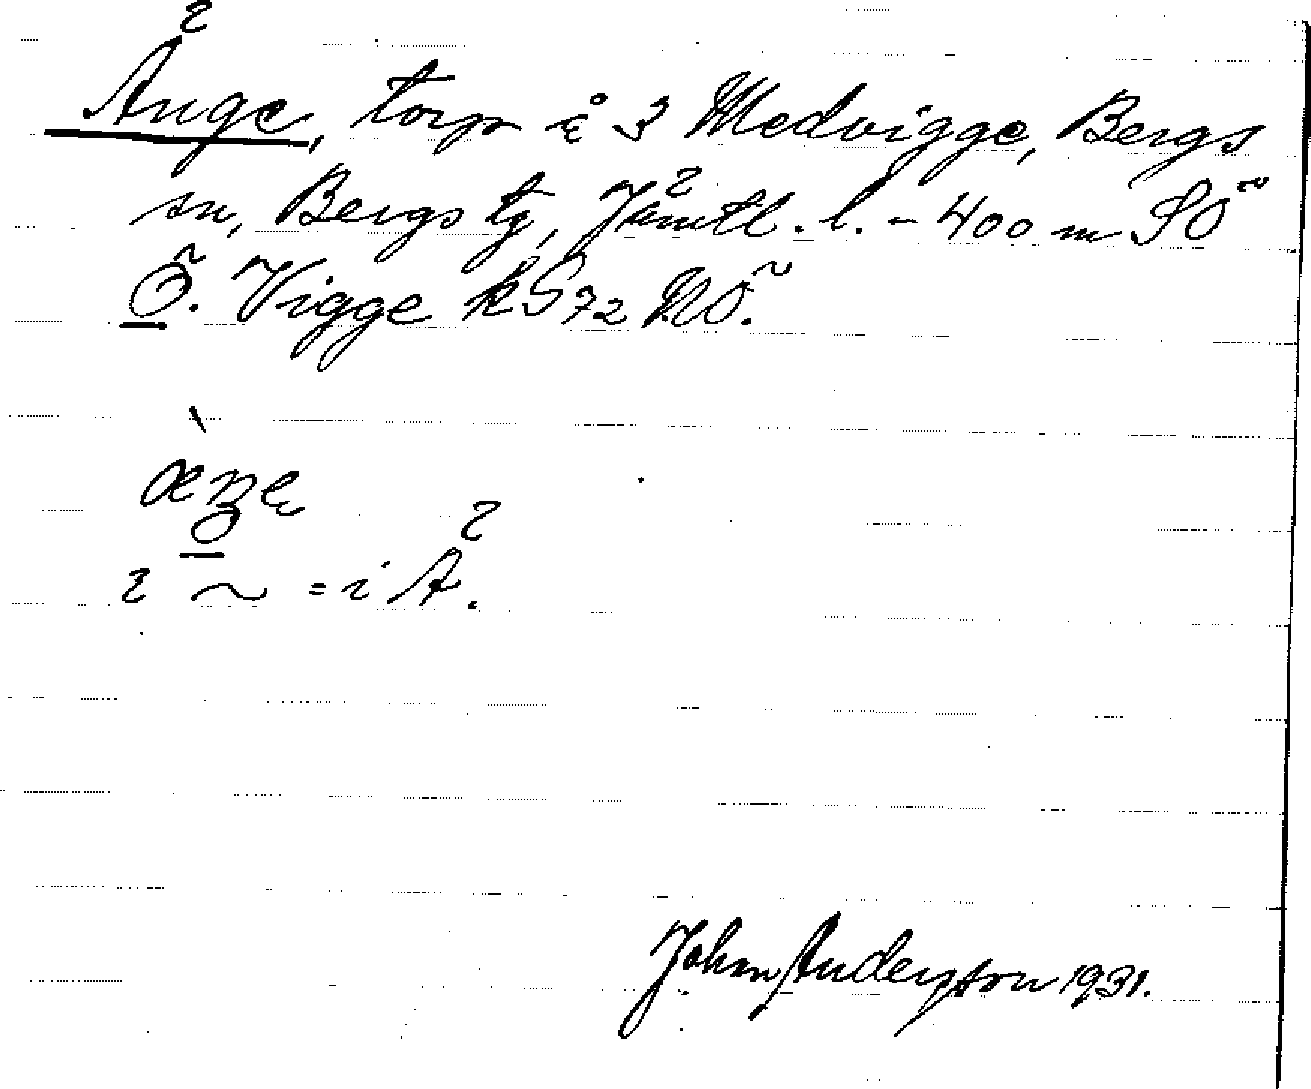 Änge, torp å 3 Medvigge, Bergs
sn, Bergs tg, Jämtl. l. - 400 m SÖ
Ö. Vigge kS72 NÖ.
i ~ = i Ä.
John Andersson 1931.